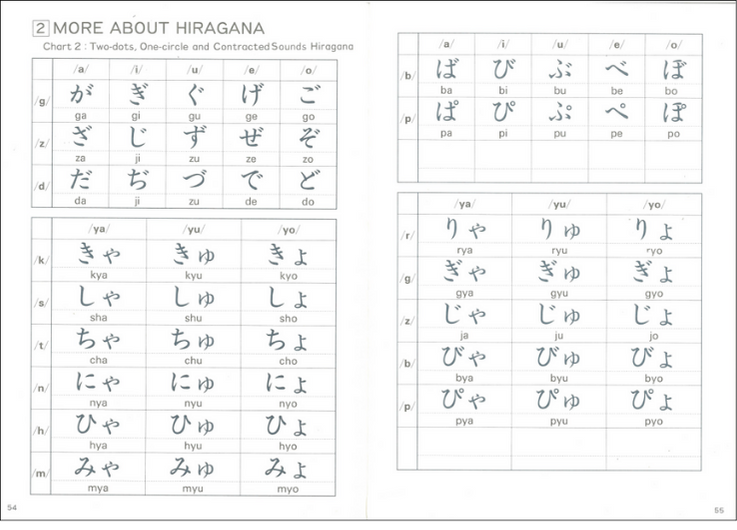 2 MORE ABOUT HIRAGANA
Chart 2 : Two-dots, One-circle and Contracted Sounds Hiragana
/a/ /i/ /u/ /e/ /o/
/g/ が ぎ ぐ げ ご
ga gi gu ge go
/z/ ざ じ ず ぜ ぞ
za ji zu ze zo
/d/ だ ぢ づ で ど
da ji zu de do
/ya/ /yu/ /yo/
/k/ きゃ きゅ きょ
kya kyu kyo
/s/ しゃ しゅ しょ
sha shu sho
/t/ ちゃ ちゅ ちょ
cha chu cho
/n/ にゃ にゅ にょ
nya nyu nyo
/h/ ひゃ ひゅ ひょ
hya hyu hyo
/m/ みゃ みゅ みょ
mya myu myo
54
/a/ /i/ /u/ /e/ /o/
/b/ ば び ぶ べ ぼ
ba bi bu be bo
/p/ ぱ ぴ ぷ ぺ ぽ
pa pi pu pe po
/ya/ /yu/ /yo/
/r/ りゃ りゅ りょ
rya ryu ryo
/g/ ぎゃ ぎゅ ぎょ
gya gyu gyo
/z/ じゃ じゅ じょ
ja ju jo
/b/ びゃ びゅ びょ
bya byu byo
/p/ ぴゃ ぴゅ ぴょ
pya pyu pyo
55